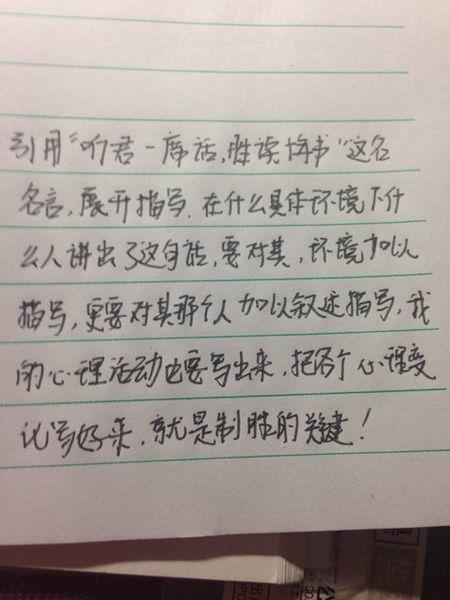 引用“听君一席话,胜读十年书”这名
名言,展开描写.在什么具体环境下什
么人讲出了这句话,要对其,环境加以
描写,更要对其那个人加以叙述描写,我
的心理活动也要写出来,把各个心理变
化写好来,就是制胜的关键!